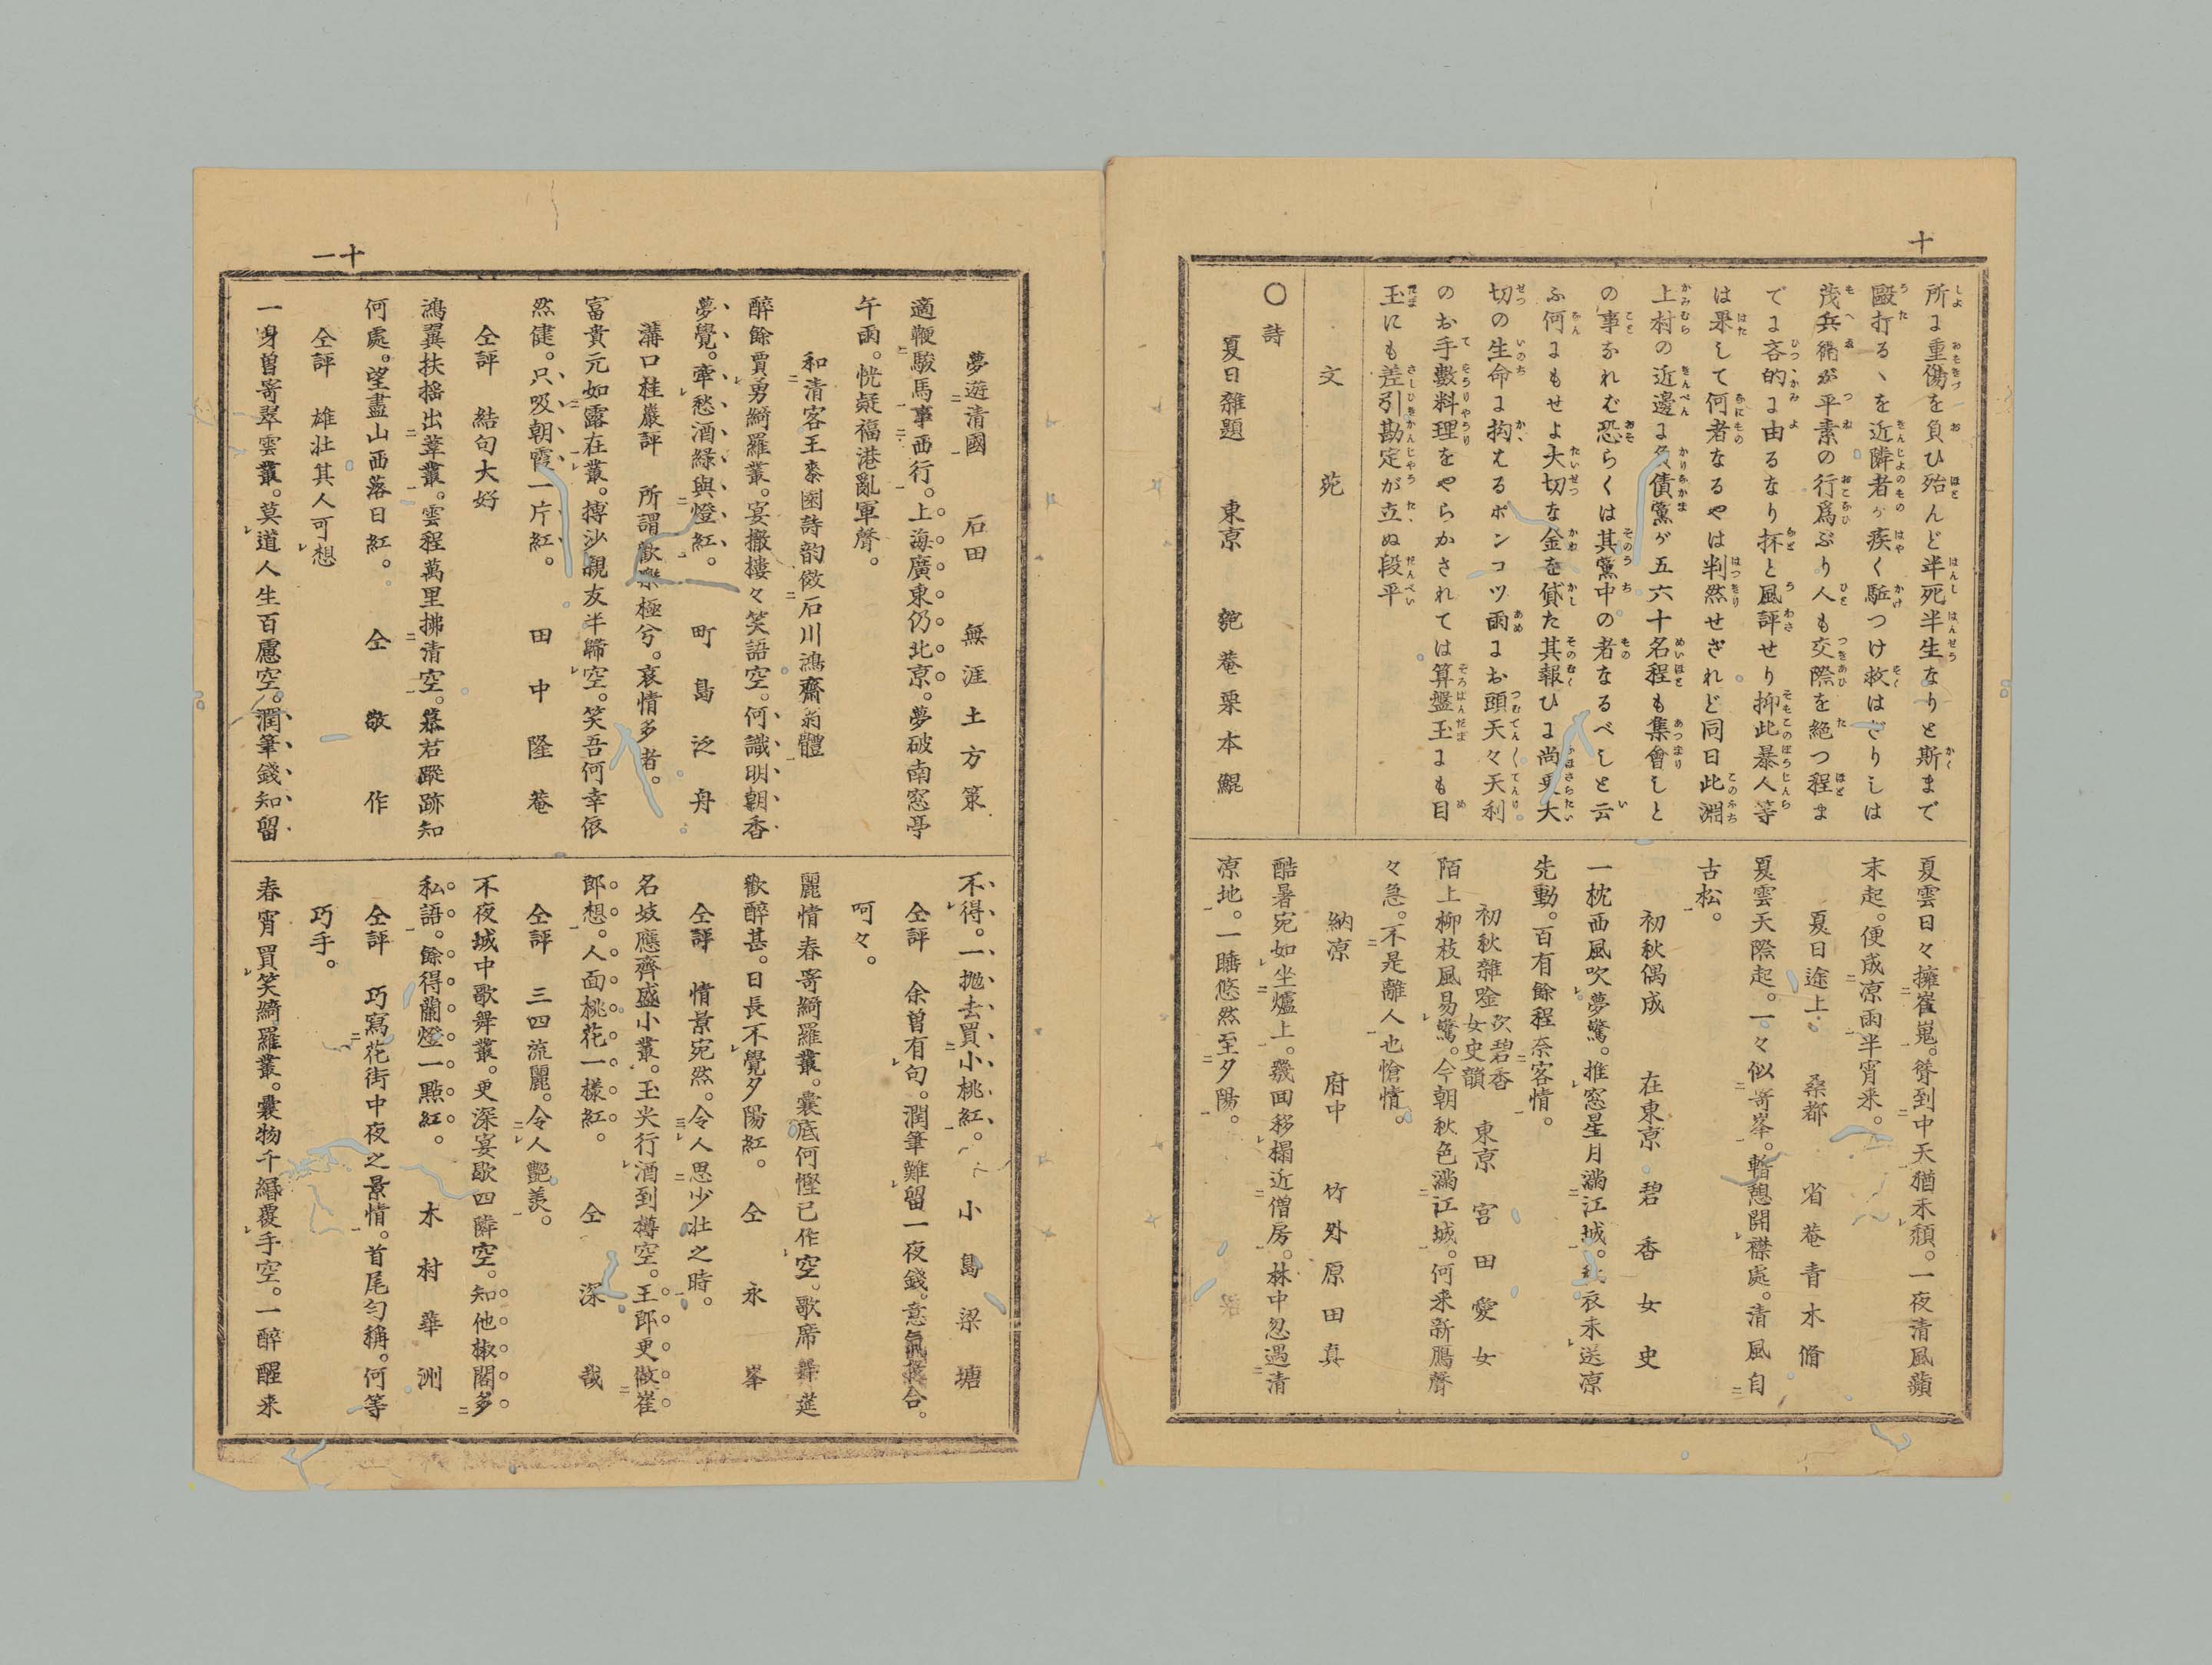 十
所に重傷を負ひ殆んど半死半生なりと斯まで
毆打るヽを近隣者が疾く駈つけ救はざりしは
茂兵衛が平素の行爲ぶり人も交際を絶つ程ま
でに吝的に由るなり抔と風評せり抑此暴人等
は果して何者なるや判然せざれど同日此淵
上村の近邊に負債黨が五六十名程も集會しと
の事なれむ恐らくは其黨中の者なるべしと云
ふ何にもせよ大切な金を貸た其報ひに尚更大
切の生命に拘はるポンコツ雨にお頭天々天利
のお手數料理をやらかされては算盤玉にも目
玉にも差引勘定が立ぬ段平
文苑
〇詩
夏日雜題 東京 匏菴栗本鯤
夏雲日々擁崔嵬。聳到中天猶未頽。一夜清風蘋
末起。便成凉雨半宵来。
夏日途上 桑都 省菴青木脩
夏雲天際起。一々似寄峯。暫憩開襟處。清風自
古松。
初秋偶成 在東京 碧香女史
一枕西風吹夢驚。推窓星月滿江城。衣未送凉
先動。百有餘程奈客情。
初秋雜唫 次碧香女史韻 東京 宮田愛女
陌上柳枝風易驚。今朝秋色滿江城。何来新鴈聲
々急。不是離人也愴情。
納凉 府中 竹外原田真
酷暑宛如坐爐上。幾回移榻近僧房。林中忽遇清
凉地。一睡悠然至夕陽。
十一
夢遊清國 石田 無涯土方策
適鞭駿馬事西行。上海廣東仍北京。夢破南窓亭
午雨。恍疑福港亂軍聲。
和清客王桼園詩韵傚石川鴻齋翁體
醉餘賈勇綺羅叢。宴撤樓々笑語空。何識明朝香
夢覺。牽愁酒緑與燈紅。 町島泛舟
溝口桂巖評 所謂歡樂極兮。哀情多者。
富貴元如露在叢。摶沙親友半歸空。笑吾何幸依
然健。只吸朝霞一片紅。 田中隆菴
仝評 結句大好
鴻翼扶搖出葦叢。雲程萬里拂清空。慕君蹤跡知
何處。望盡山西落日紅。 仝 敬作
仝評 雄壮其人可想
一身曽寄翠雲叢。莫道人生百慮空。潤筆錢知留
不得。一抛去買小桃紅。 小島梁塘
仝評 余曽有句。潤筆難留一夜錢。意氣合。
呵々。
麗情春寄綺羅叢。嚢底何慳已作空。歌席舞莚
歡醉甚。日長不覺夕陽紅。 仝 永峯
仝評 情景宛然。令人思少壮之時。
名妓應齊盛小叢。玉尖行酒到樽空。王郎更傚崔
郎想。人面桃花一樣紅。 仝 深哉
仝評 三四流麗。令人艷羨。
不夜城中歌舞叢。更深宴歇四隣空。知他椒閣多
私語。餘得蘭燈一點紅。 木村華洲
仝評 巧寫花街中夜之景情。首尾勻稱。何等
巧手。
春宵買笑綺羅叢。嚢物千緡覆手空。一醉醒来